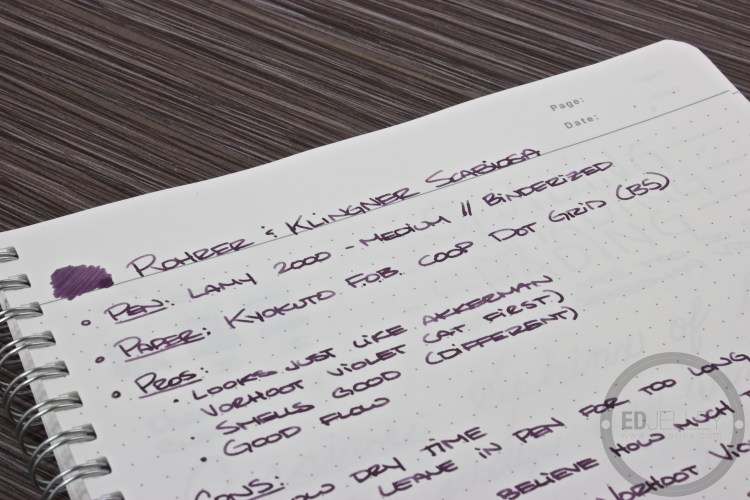 Page:
Date:
Rohrer & Klingner Scabiosa
• Pen: Lamy 2000 - Medium // Binderized
• Paper: Kyokuto F.O.B. COOP Dot Grid (B5)
• Pros:
• Looks just like Akkerman
Vorhoot Violet (at first)
• Smells good (different)
• Good flow
Cons:
Dry time
Leave in pen for too long
Believe how much
Vorhoot
EDJELLEY